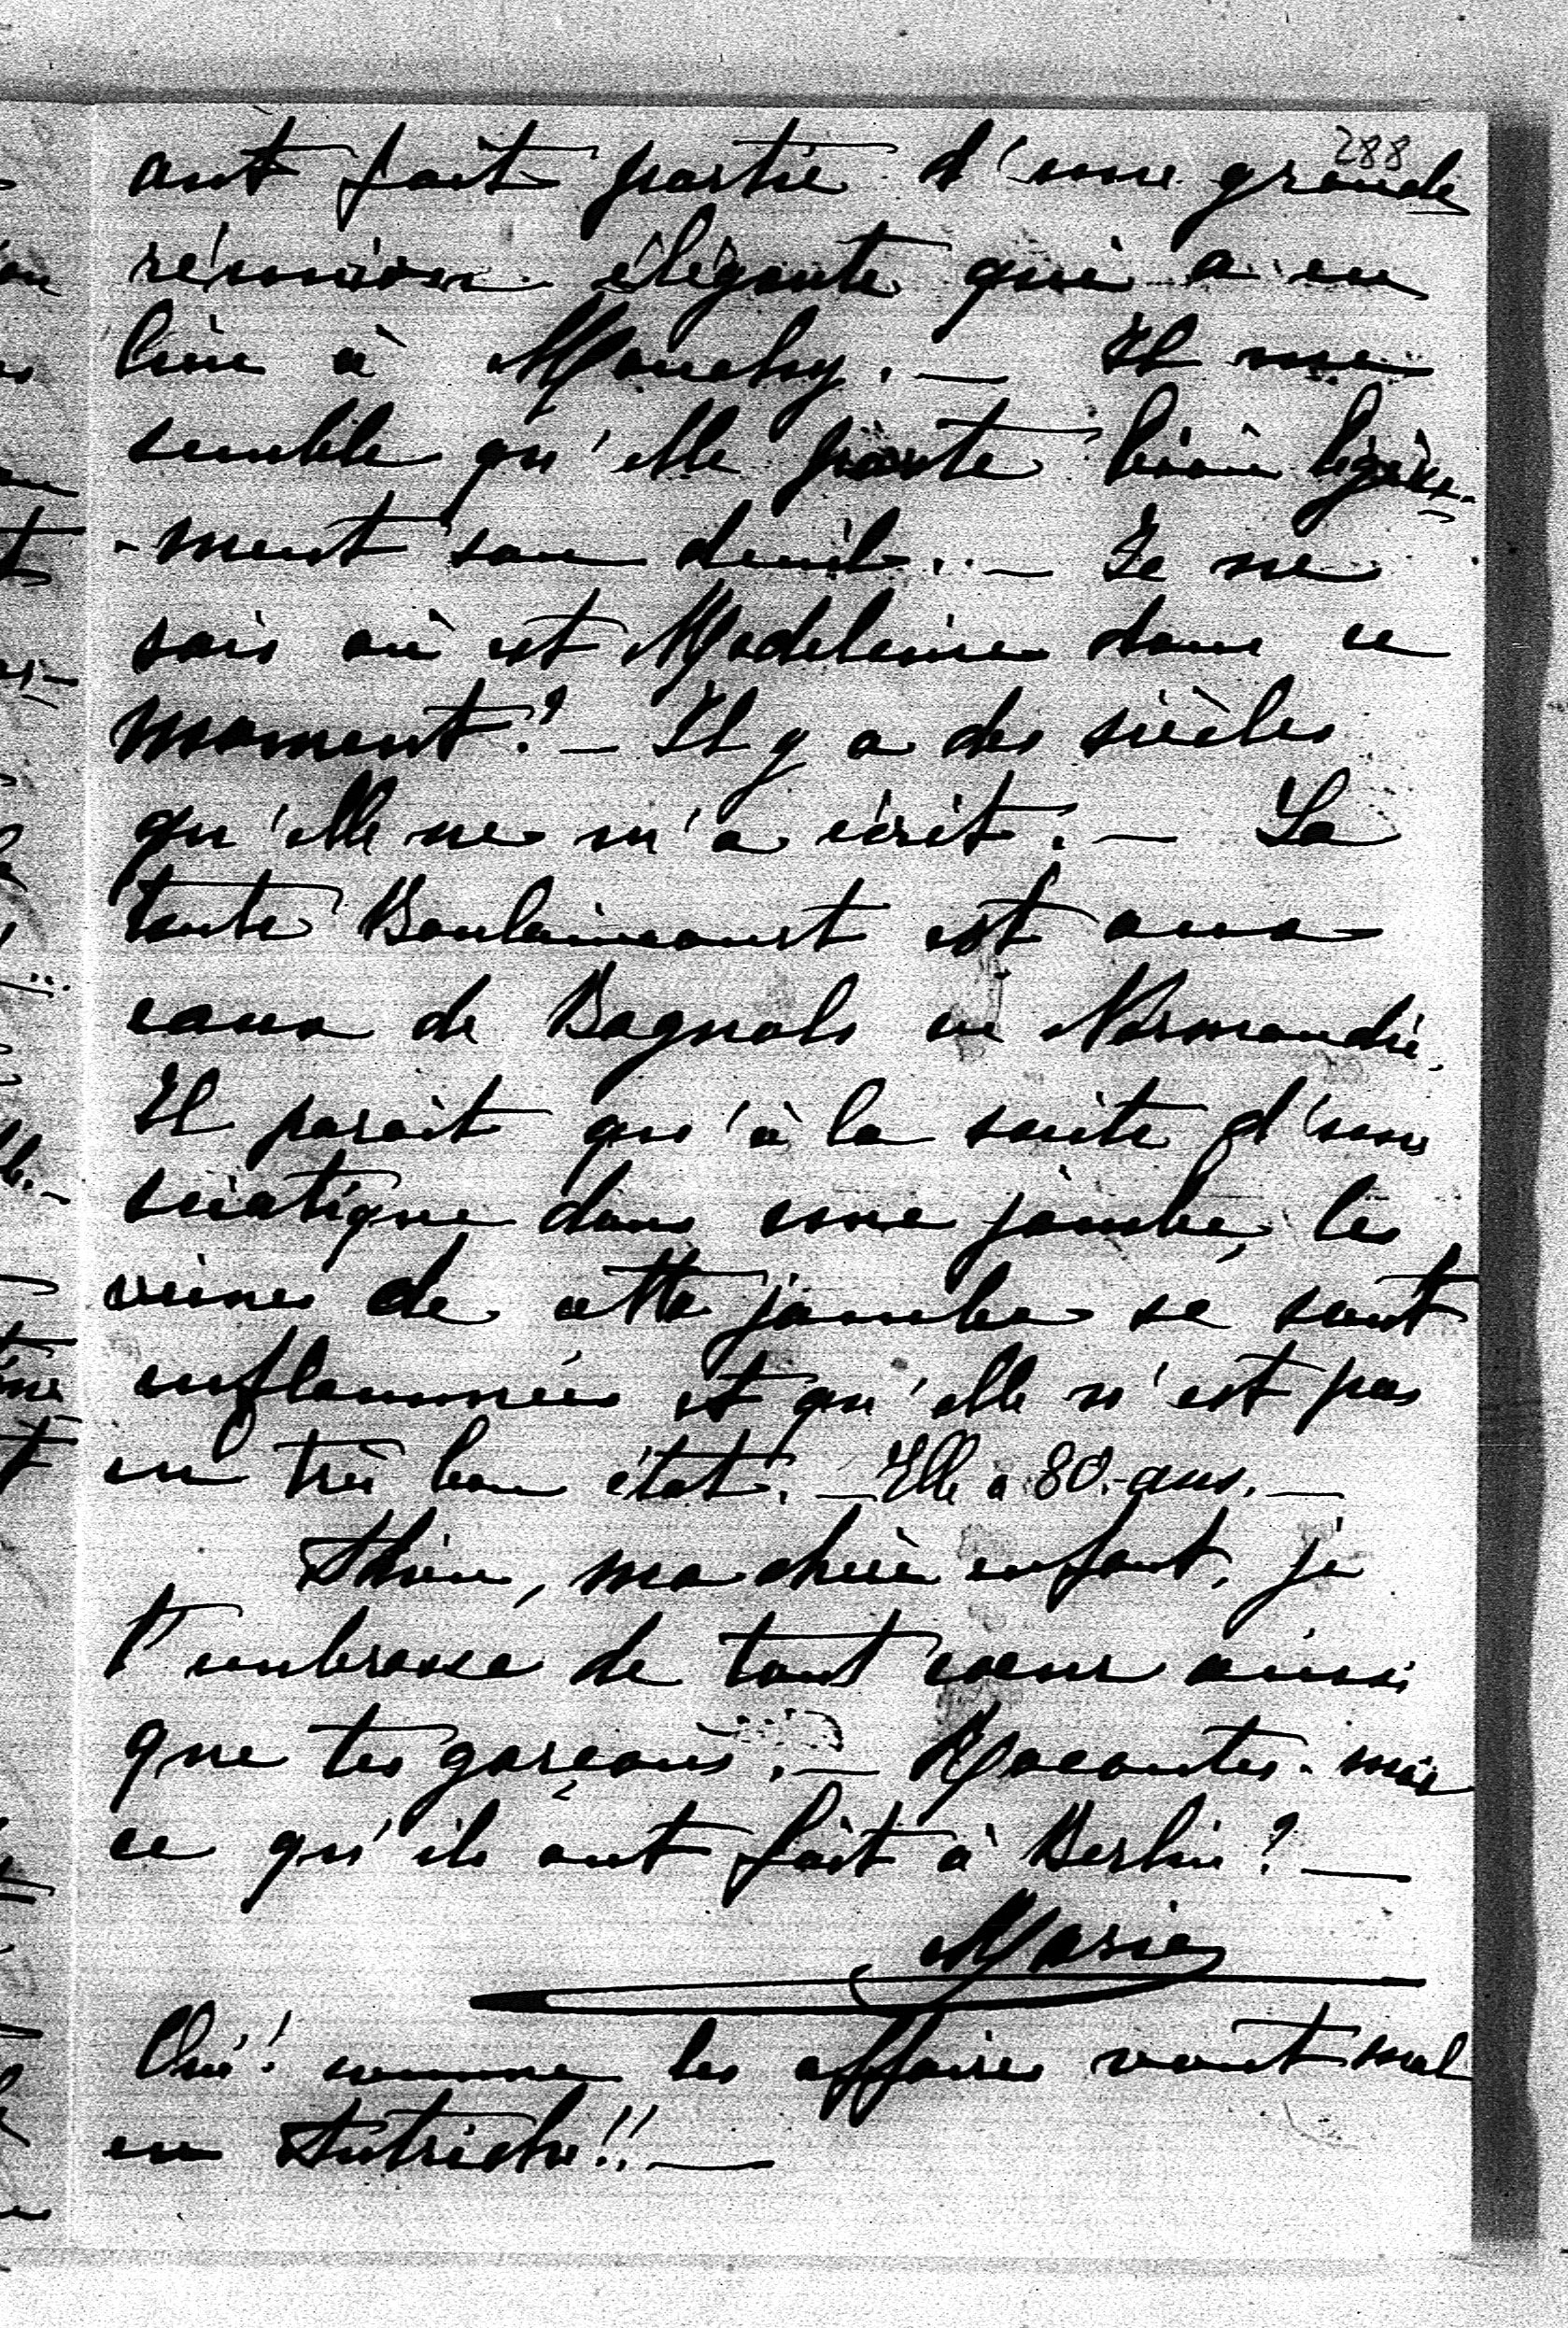 288
ont fait partie d'une grande
réunion élégante qui a eu
lieu à Mouchy. — Il me
semble qu'elle porte bien légère-
-ment son deuil. — Je ne
sais où est Madeleine dans ce
moment? — Il y a des siècles
qu'elle ne m'a écrit. — La
tante Boulaincourt est aux
eaux de Bagnols en Normandie.
Il parait qu'à la suite d'une
sciatique dans une jambe, les
veines de cette jambe se sont
enflammées et qu'elle n'est pas
en très bon état. — Elle a 80 ans. —
Adieu, ma chère enfant, je
t'embrasse de tout cœur ainsi
que tes garçons. — Racontes-moi
ce qu'ils ont fait à Berlin? —
Marie
Oui! comme les affaires vont mal
en Autriche!! —